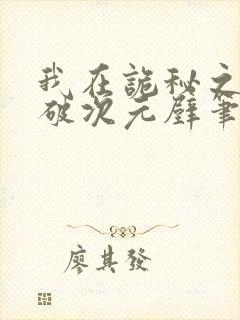 我在詭秘之
破次元壁筆
廖其發